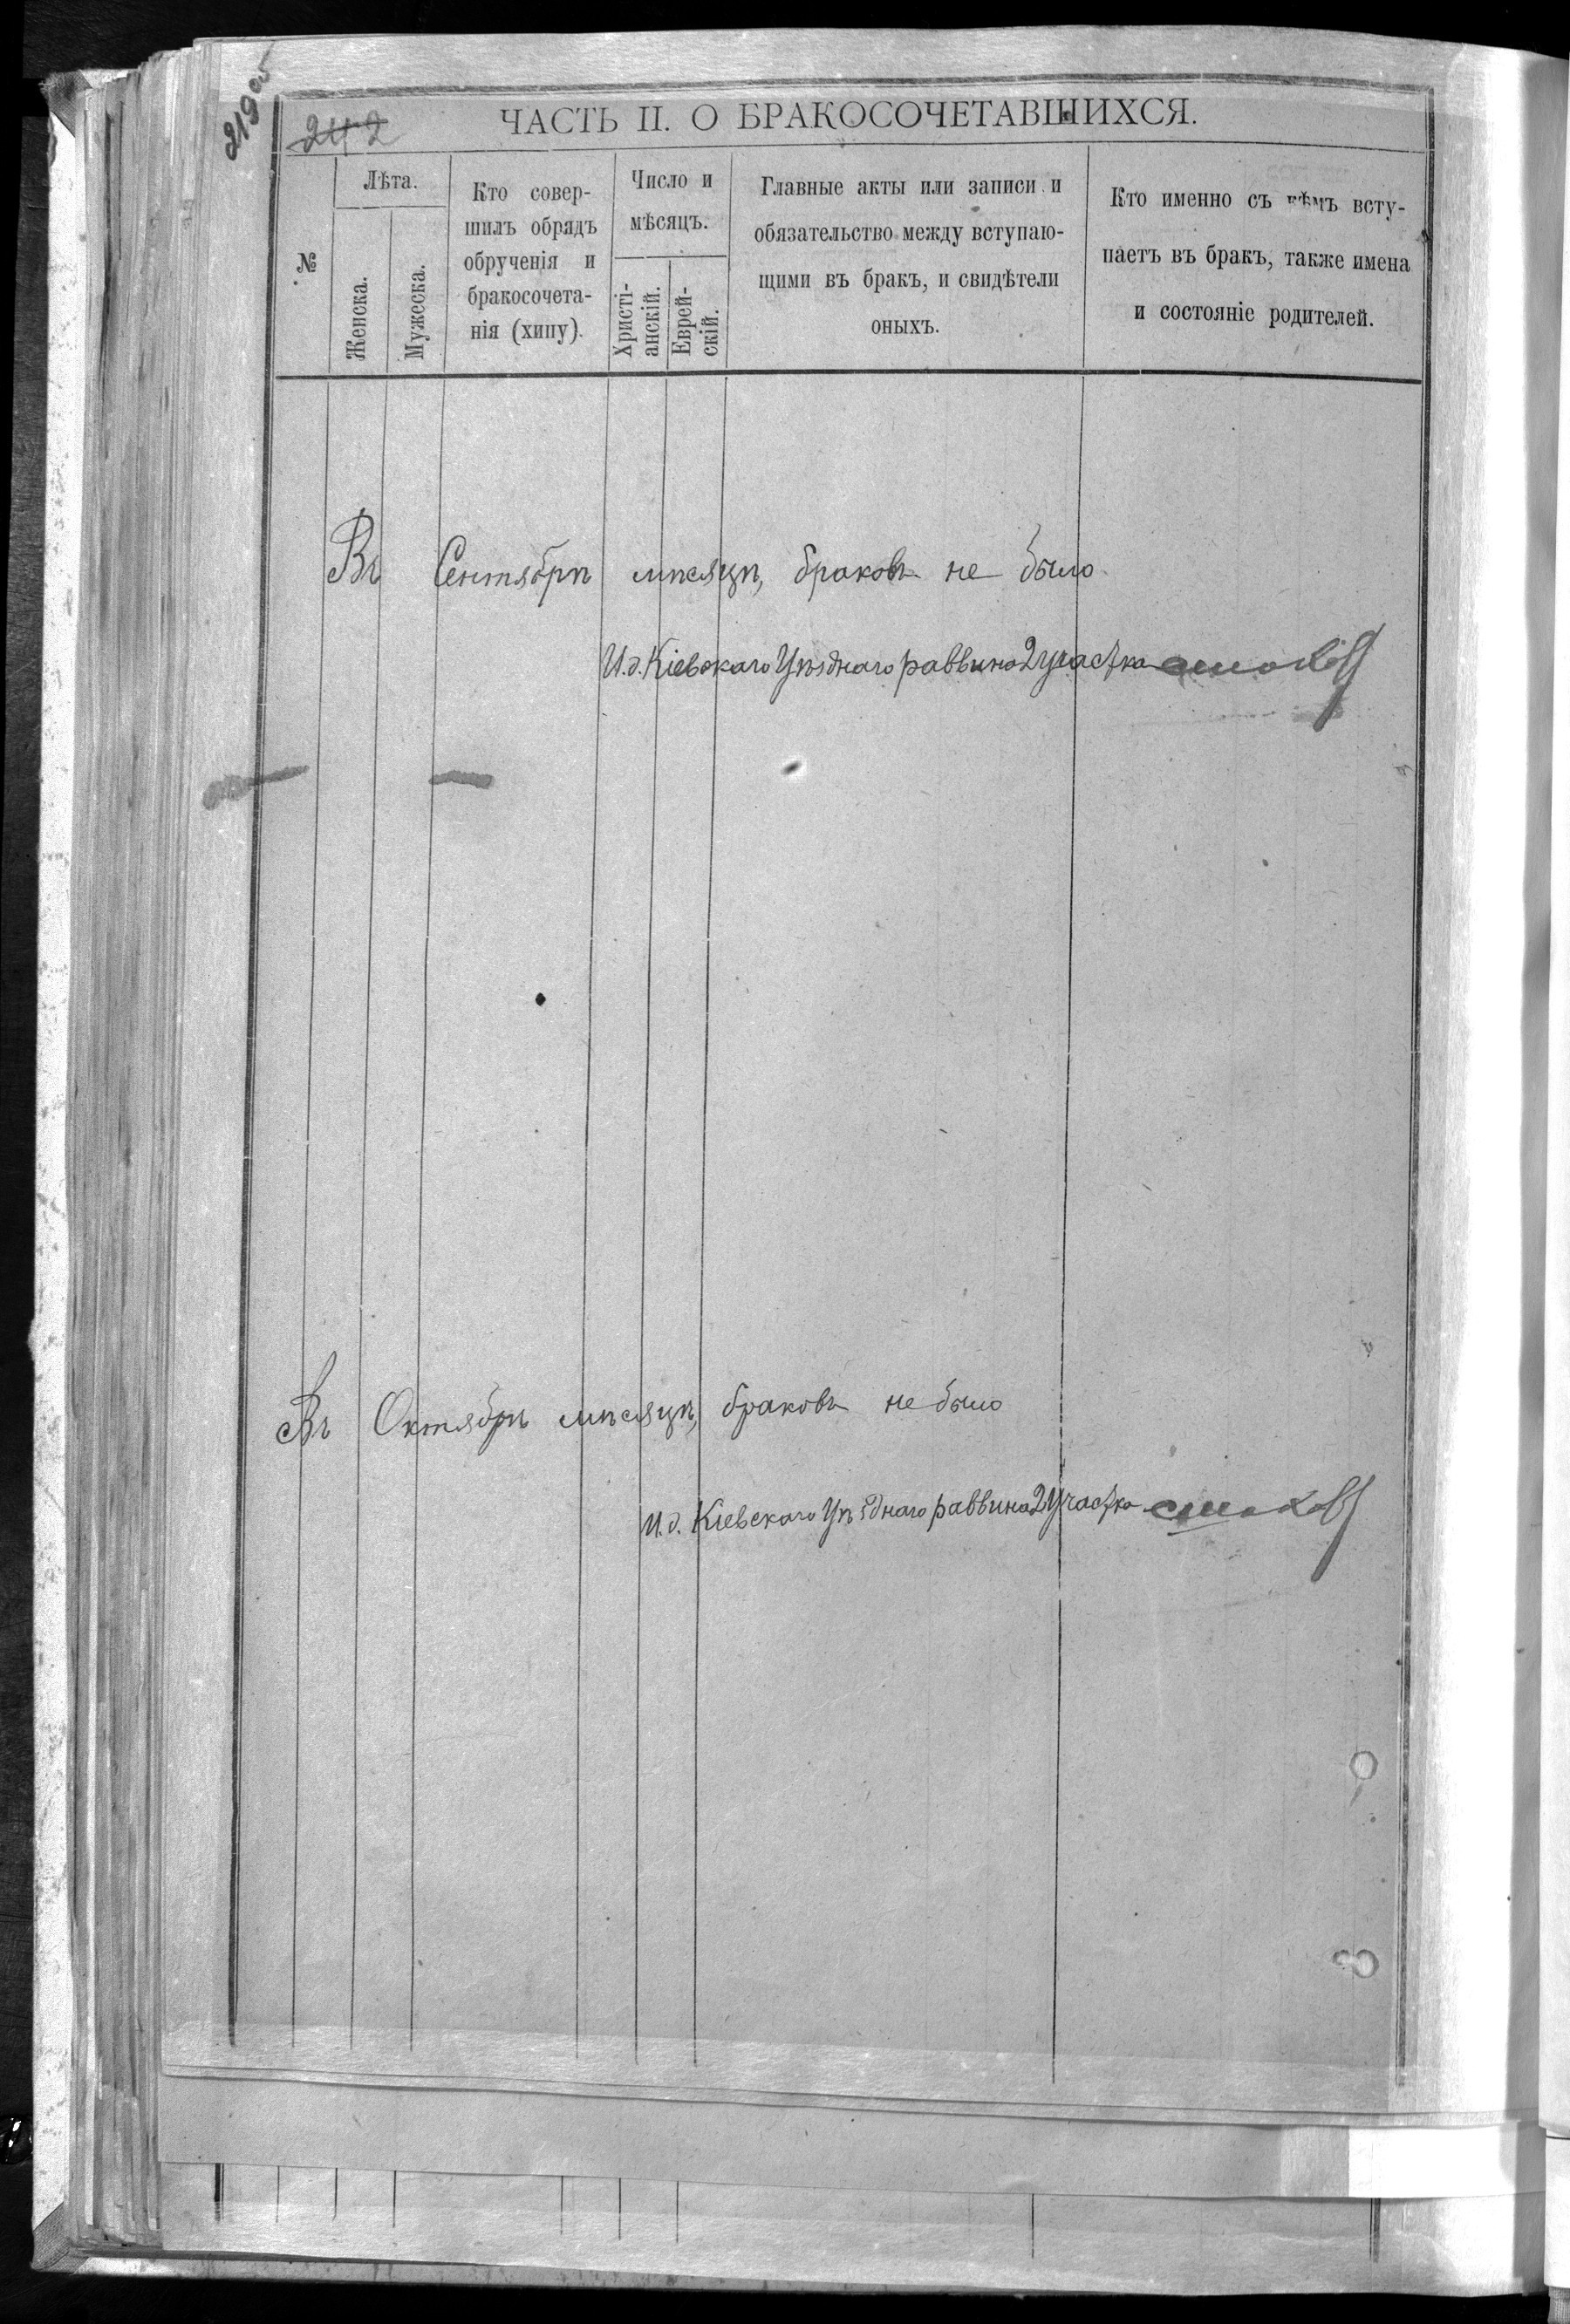 219 об
242
ЧАСТЬ II. О БРАКОСОЧЕТАВШИХСЯ.
№
Лѣта.
Женска.
Мужеска.
Кто совер-
шилъ обрядъ
обрученія и
бракосочета-
нія (хипу).
Число и
мѣсяцъ.
Христі-
анскій.
Еврей-
скій.
Главные акты или записи и
обязательство между вступаю-
щими въ бракъ, и свидѣтели
оныхъ.
Кто именно съ кѣмъ всту-
паетъ въ бракъ, также имена
и состояніе родителей.
Въ Сентябрѣ мѣсяцѣ, браковъ не было
И.д. Кіевскаго Уѣзднаго раввина 2 участка
Въ Октябрѣ мѣсяцѣ, браковъ не было
И.д. Кіевскаго Уѣзднаго раввина 2 участка